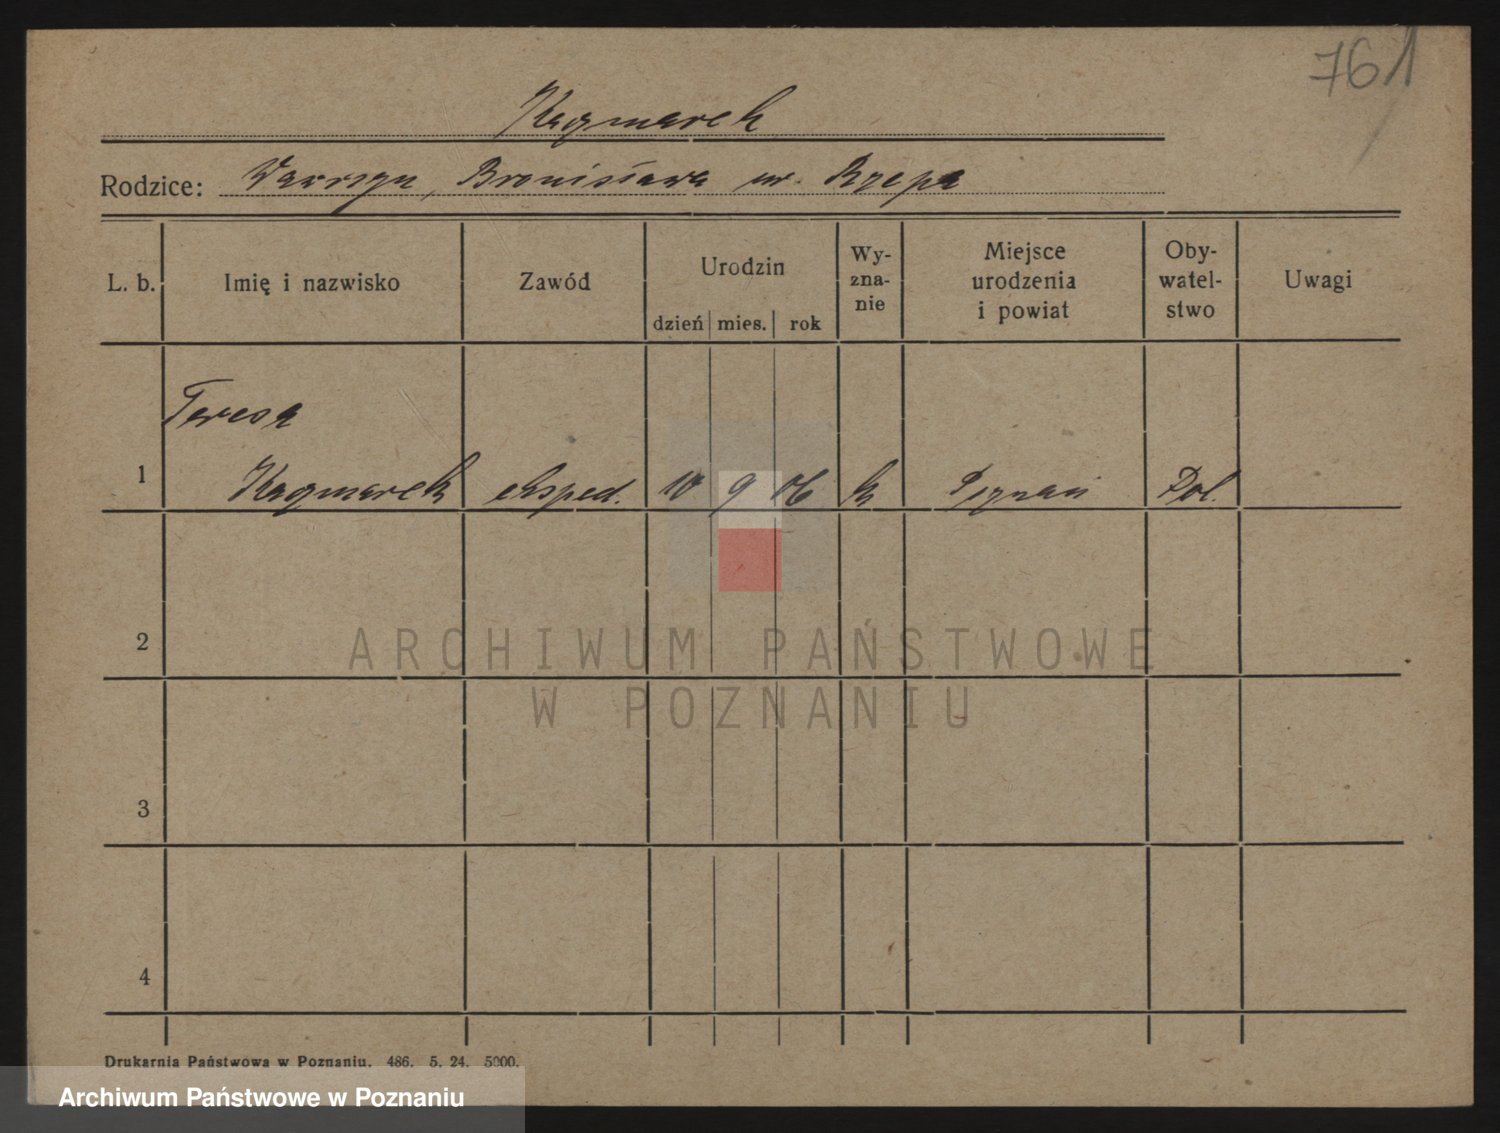 761
Kaczmarek
Rodzice: Wawrzyn, Bronisława ur. Rzepa
L. b. Imię i nazwisko Zawód Urodzin dzień mies. rok Wy-zna-nie Miejsce urodzenia i powiat Oby-watel-stwo Uwagi
Teresa
1 Kaczmarek eksped. 10 9 06 k Poznań Pol.
2
ARCHIWUM PAŃSTWOWE
W POZNANIU
3
4
Drukarnia Państwowa w Poznaniu. 486. 5. 24. 5000.
Archiwum Państwowe w Poznaniu